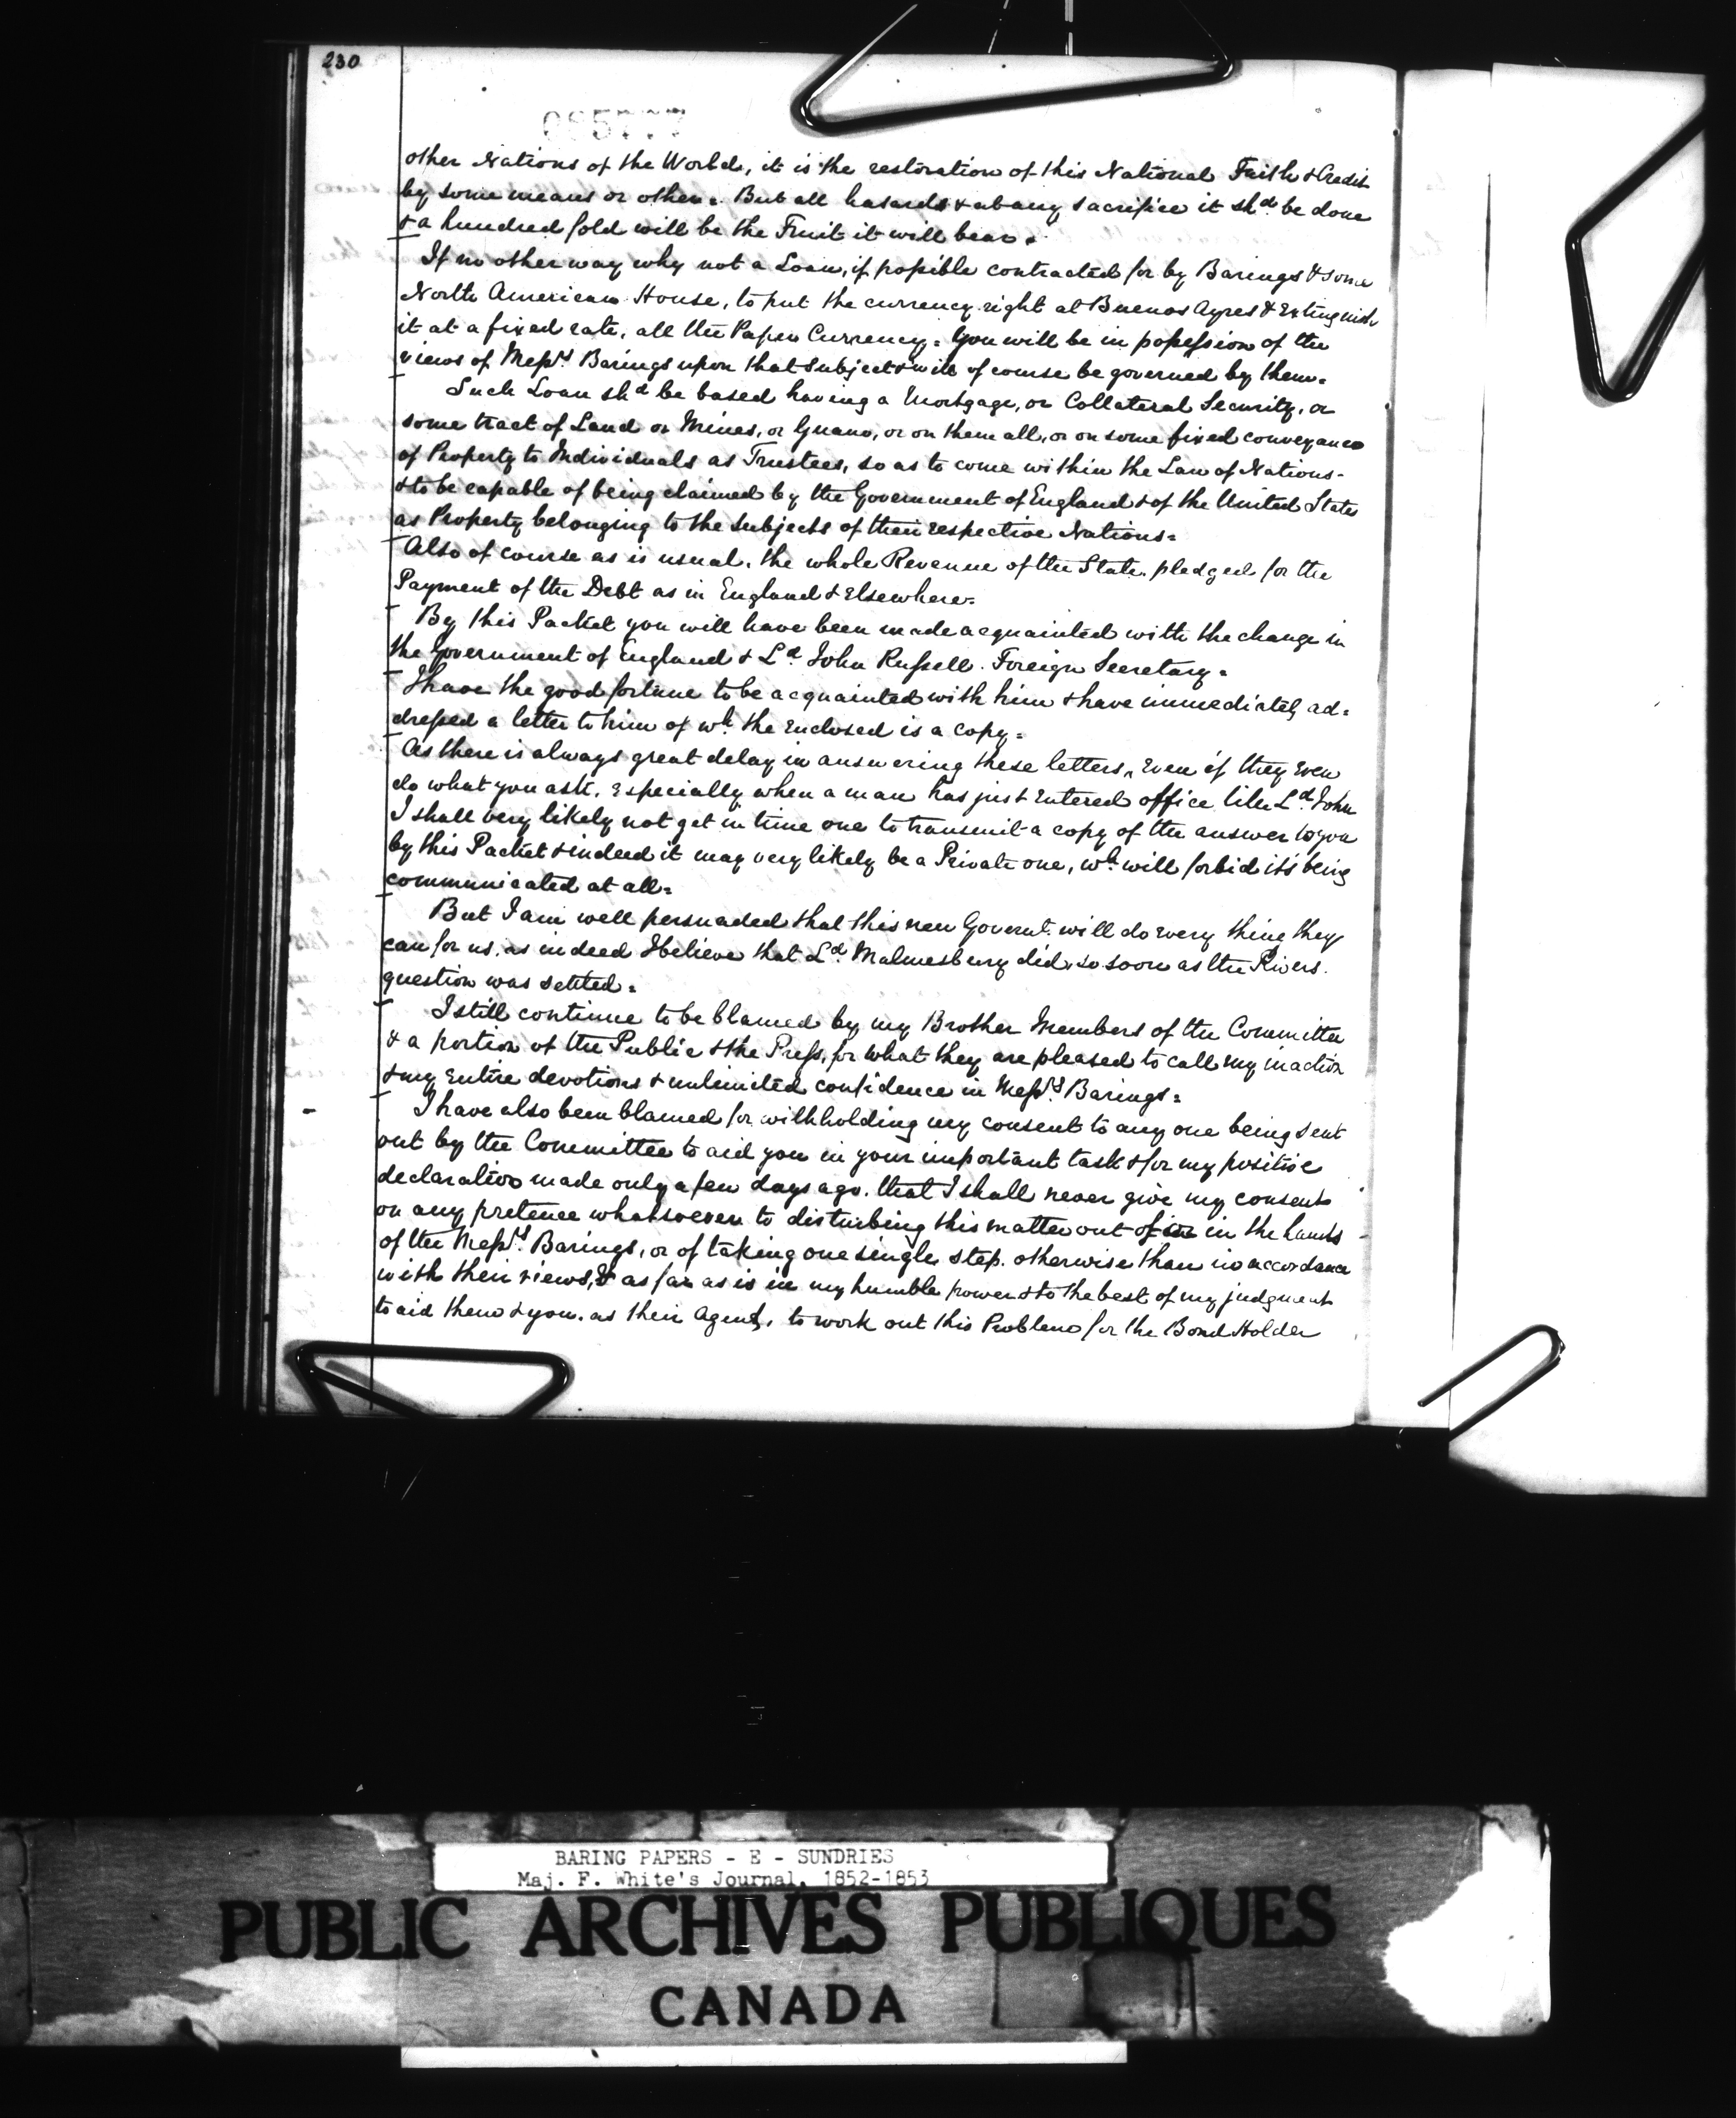 230
other Nations of the World, it is the restoration of this National Faith & Credit
by some means or other. But all hasards & at any sacrifice it shd. be done
& a hundred fold will be the Fruit it will bear.
If no other way why not a Loan, if possible contracted for by Barings & some
North American House, to put the currency right at Buenos Ayres & Extinguish
it at a fixed rate, all the Paper Currency. You will be in possession of the
views of Messrs. Barings upon that subject & will of course be governed by them.
Such Loan shd. be based having a Mortgage, or Collateral Security, or
some tract of Land or Mines, or Guano, or on them all, or on some fixed conveyance
of Property to Individuals as Trustees, so as to come within the Law of Nations
& to be capable of being claimed by the Government of England & of the United States
as Property belonging to the subjects of their respective Nations.
Also of course as is usual, the whole Revenue of the State pledged for the
Payment of the Debt as in England & Elsewhere.
By this Packet you will have been made acquainted with the change in
the Government of England & Ld. John Russell Foreign Secretary.
I have the good fortune to be acquainted with him & have immediately ad=
dressed a letter to him of wh. the Enclosed is a copy.
As there is always great delay in answering these letters, Even if they Even
do what you ask, Especially when a man has just Entered office like Ld. John
I shall very likely not get in time one to transmit a copy of the answer to you
by this Packet & indeed it may very likely be a Private one, wh. will forbid it's being
communicated at all.
But I am well persuaded that this new Governt. will do Every thing they
can for us, as indeed I believe that Ld. Malmesbury did, so soon as the Rivers
question was settled.
I still continue to be blamed by my Brother Members of the Committee
& a portion of the Public & the Press, for what they are pleased to call my inaction
& my Entire devotion & unlimited confidence in Messrs. Barings.
I have also been blamed for withholding my consent to any one being sent
out by the Committee to aid you in your important task & for my positive
declaration made only a few days ago, that I shall never give my consent
on any pretence whatsoever to disturbing this matter out of in the hands
of the Messrs. Barings, or of taking one single step, otherwise than in accordance
with their views, & as far as is in my humble power & to the best of my judgment
to aid them & you, as their Agent, to work out this Problem for the Bond Holder
BARING PAPERS - E - SUNDRIES
Maj. F. White's Journal, 1852-1853
PUBLIC ARCHIVES PUBLIQUES
CANADA